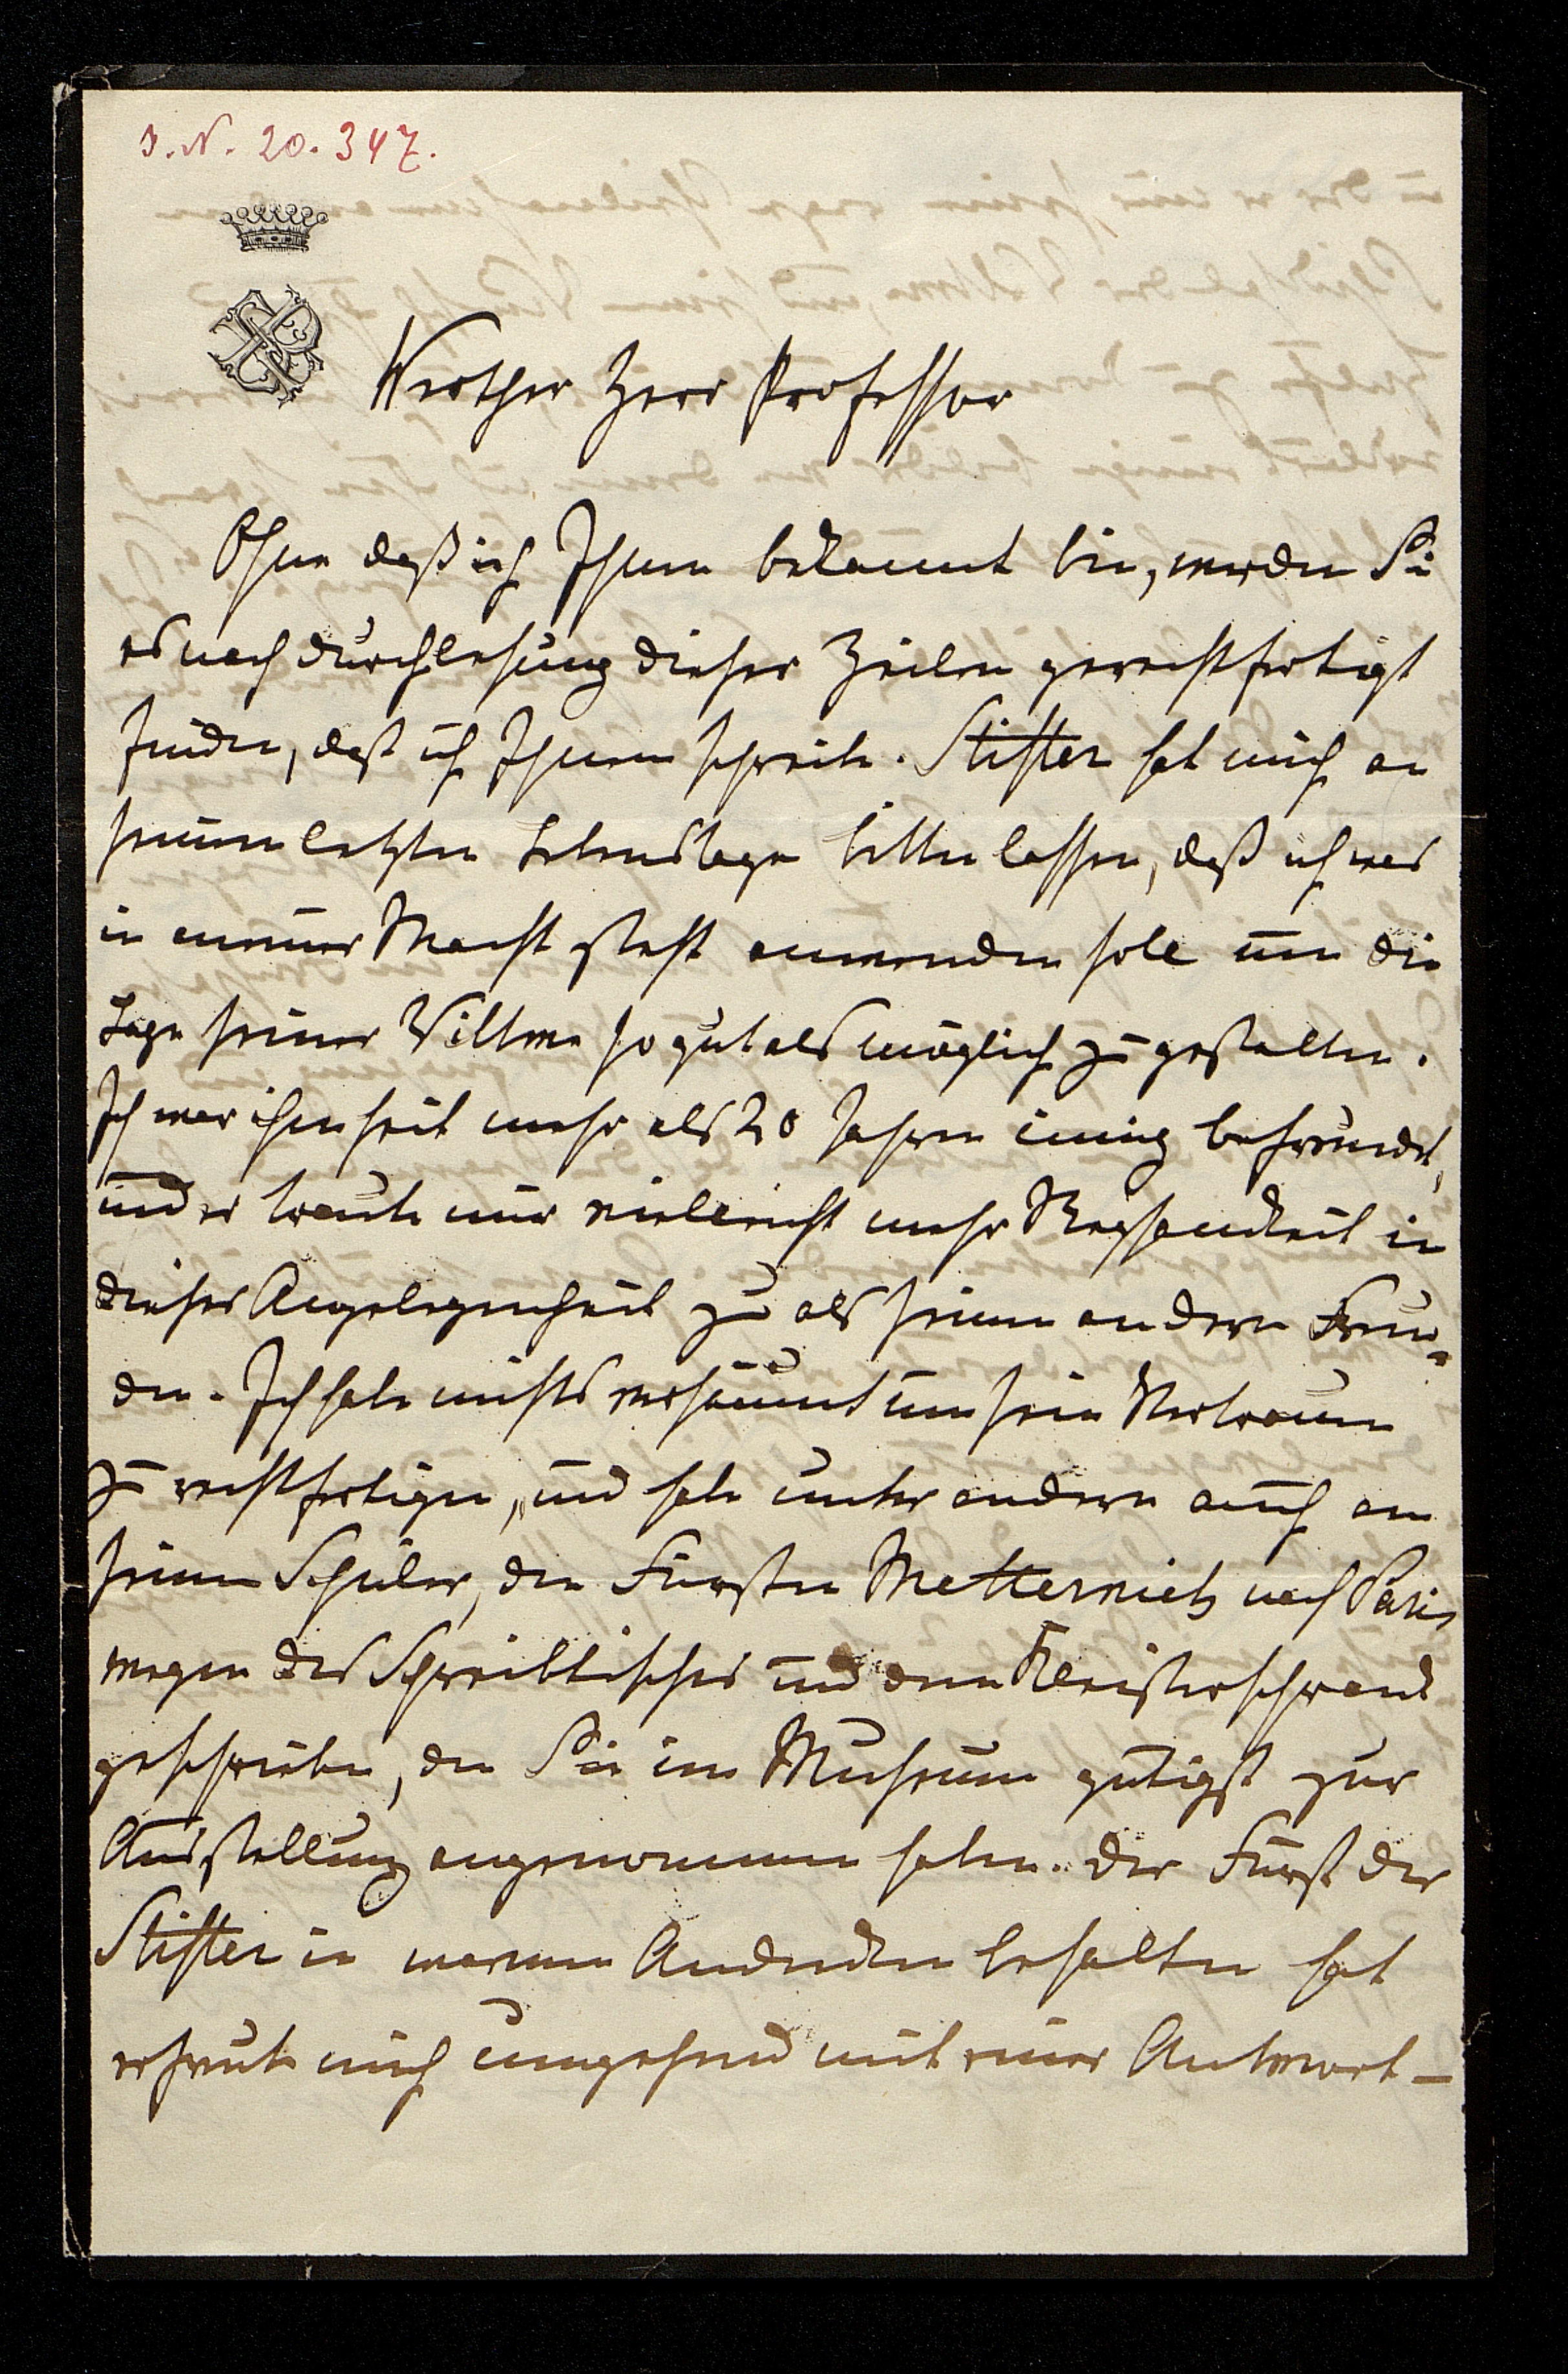 I. N. 20.347.
Werther Herr Professor
Ohne daß ich Ihnen bekannt bin, werden Sie
es nach Durchlesung dieser Zeilen gerechtfertigt
finden, daß ich Ihnen schreibe. Stifter hat mich an
seinem letzten Lebenstage bitten lassen, daß ich was
in meiner Macht steht anwenden solle um die
Lage seiner Wittwe so gut als möglich zu gestalten.
Ich war ihm seit mehr als 20 Jahren innig befreundet,
und er traute mir vielleicht mehr Regsamkeit in
dieser Angelegenheit zu als seinen andern Freun-
den. Ich habe nichts versäumt um sein Vertrauen
zu rechtfertigen, und habe unter andern auch an
seinen Schüler, den Fürsten Metternich nach Paris
wegen des Schreibtisches und dem Kleiderschrank
geschrieben, den Sie im Museum gütigst zur
Ausstellung angenommen haben. Der Fürst der
Stifter in warmen Andenken behalten hat
erfreute mich umgehend mit einer Antwort –